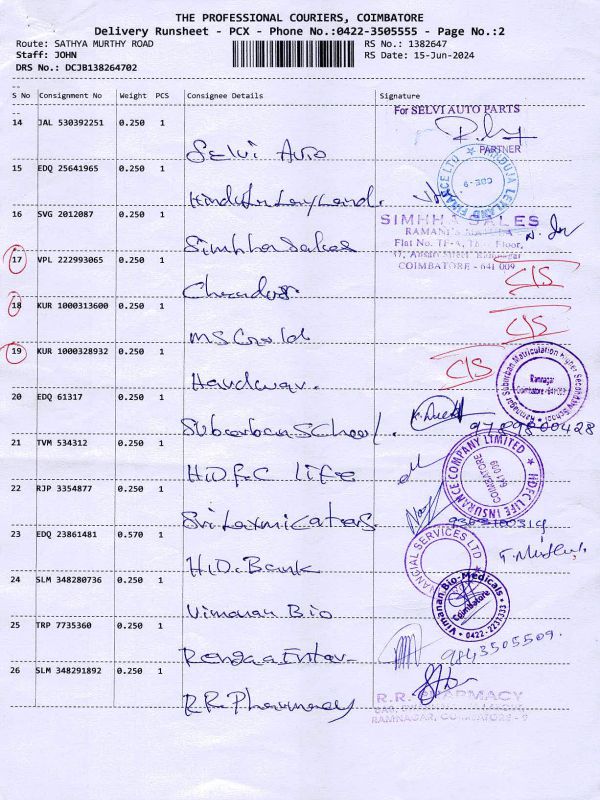 THE PROFESSIONAL COURIERS, COIMBATORE
Delivery Runsheet - PCX - Phone No.:0422-3505555 - Page No.:2
Route: SATHYA MURTHY ROAD
RS No.: 1382647
Staff: JOHN
RS Date: 15-Jun-2024
DRS No.: DCJB138264702
--
S No Consignment No Weight PCS Consignee Details Signature
--
14 JAL 530392251 0.250 1
For SELVI AUTO PARTS
PARTNER
Selvi Auto
15 EDQ 25641965 0.250 1
Hinduja Leyland.
HINDUJA LEYLAND FINANCE LTD
CBE-9
16 SVG 2012087 0.250 1
SIMHHA SALES
Simhha Sales
Flat No. TF-A, Third Floor,
COIMBATORE - 641 009
17 VPL 222993065 0.250 1
C/S
18 KUR 1000313600 0.250 1
C/S
MS Gold
19 KUR 1000328932 0.250 1
C/S
Ramnagar Suburban Matriculation Higher Secondary School
Ramnagar
Coimbatore - 641 009
20 EDQ 61317 0.250 1
Suburban School.
9789800428
21 TVM 534312 0.250 1
HDFC Life
HDFC LIFE INSURANCE COMPANY LIMITED
COIMBATORE
641 009
22 RJP 3354877 0.250 1
Sri Laxmi Caters.
23 EDQ 23861481 0.570 1
H.D. Bank
FINANCIAL SERVICES LTD
24 SLM 348280736 0.250 1
Vimanan Bio
Vimanan Bio-Medicals
Coimbatore
0422-2231333
25 TRP 7735360 0.250 1
9843505509.
26 SLM 348291892 0.250 1
R.R. Pharmacy
R.R. PHARMACY
RAMNAGAR, COIMBATORE - 9